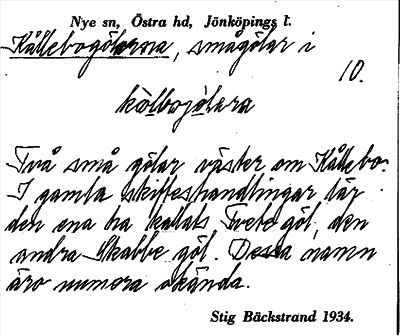 Nye sn, Östra hd, Jönköpings l.
Kållebogölarna, smågölar i
10.
kòlbojölara
Två små gölar väster om Kållebo.
I gamla skifteshandlingar lär
den ena ha kallats Tvete göl, den
andra Skabbe göl. Dessa namn
äro numera okända.
Stig Bäckstrand 1934.